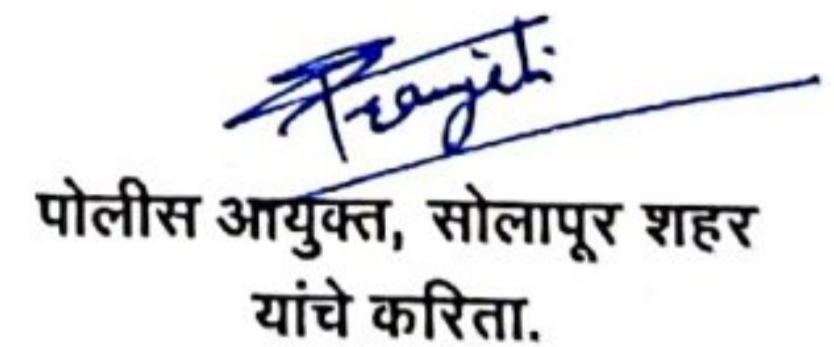 पोलीस आयुक्त, सोलापूर शहर
यांचे करिता.